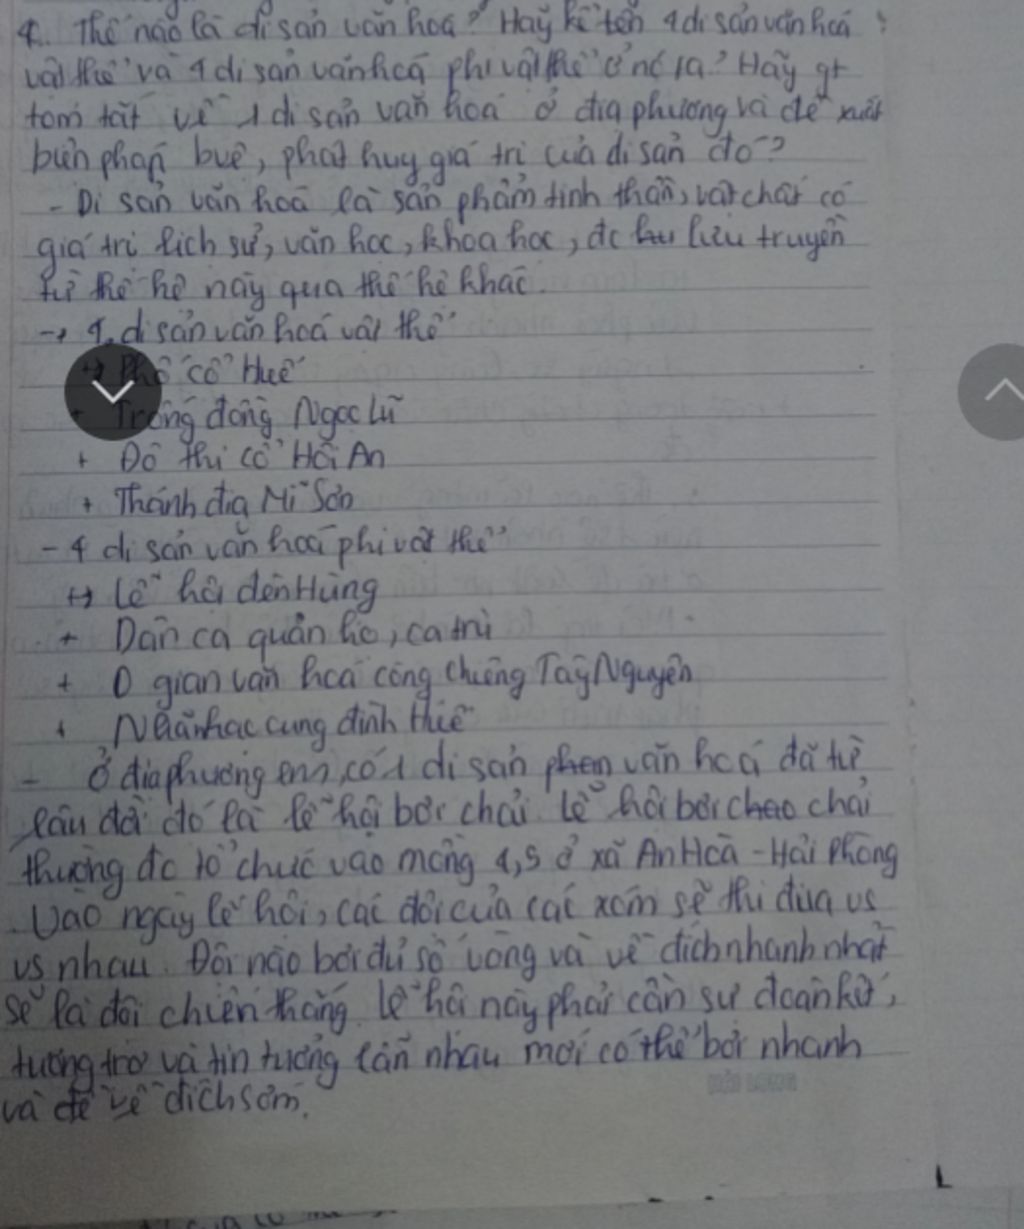 4. Thế nào là di sản văn hoá? Hãy kể tên 4 di sản văn hoá
vật thể và 4 di sản văn hoá phi vật thể ở nc ta? Hãy gt
tóm tắt về 1 di sản văn hoá ở địa phương và đề xuất
biện pháp bvệ, phát huy giá trị của di sản đó?
- Di sản văn hoá là sản phẩm tinh thần, vật chất có
giá trị lịch sử, văn học, khoa học, đc lưu truyền
từ thế hệ này qua thế hệ khác.
→ 4 di sản văn hoá vật thể
+ Phố cổ Huế
+ Trống đồng Ngọc Lũ
+ Đô thị cổ Hội An
+ Thánh địa Mĩ Sơn
- 4 di sản văn hoá phi vật thể
+ Lễ hội đền Hùng
+ Dân ca quan họ, ca trù
+ O gian văn hoá cồng chiêng Tây Nguyên
+ Nhã nhạc cung đình Huế
- Ở địa phương em có 1 di sản văn hoá đã từ
lâu đời đó là lễ hội bơi chải. Lễ hội bơi chải
thường đc tổ chức vào mồng 4,5 ở xã An Hoà - Hải Phòng
Vào ngày lễ hội, các đội của các xóm sẽ thi đua vs
vs nhau. Đội nào bơi đủ số vòng và về đích nhanh nhất
sẽ là đội chiến thắng. Lễ hội này phải cần sự đoàn kết,
tương trợ và tin tưởng lẫn nhau mới có thể bơi nhanh
và để về đích sớm.